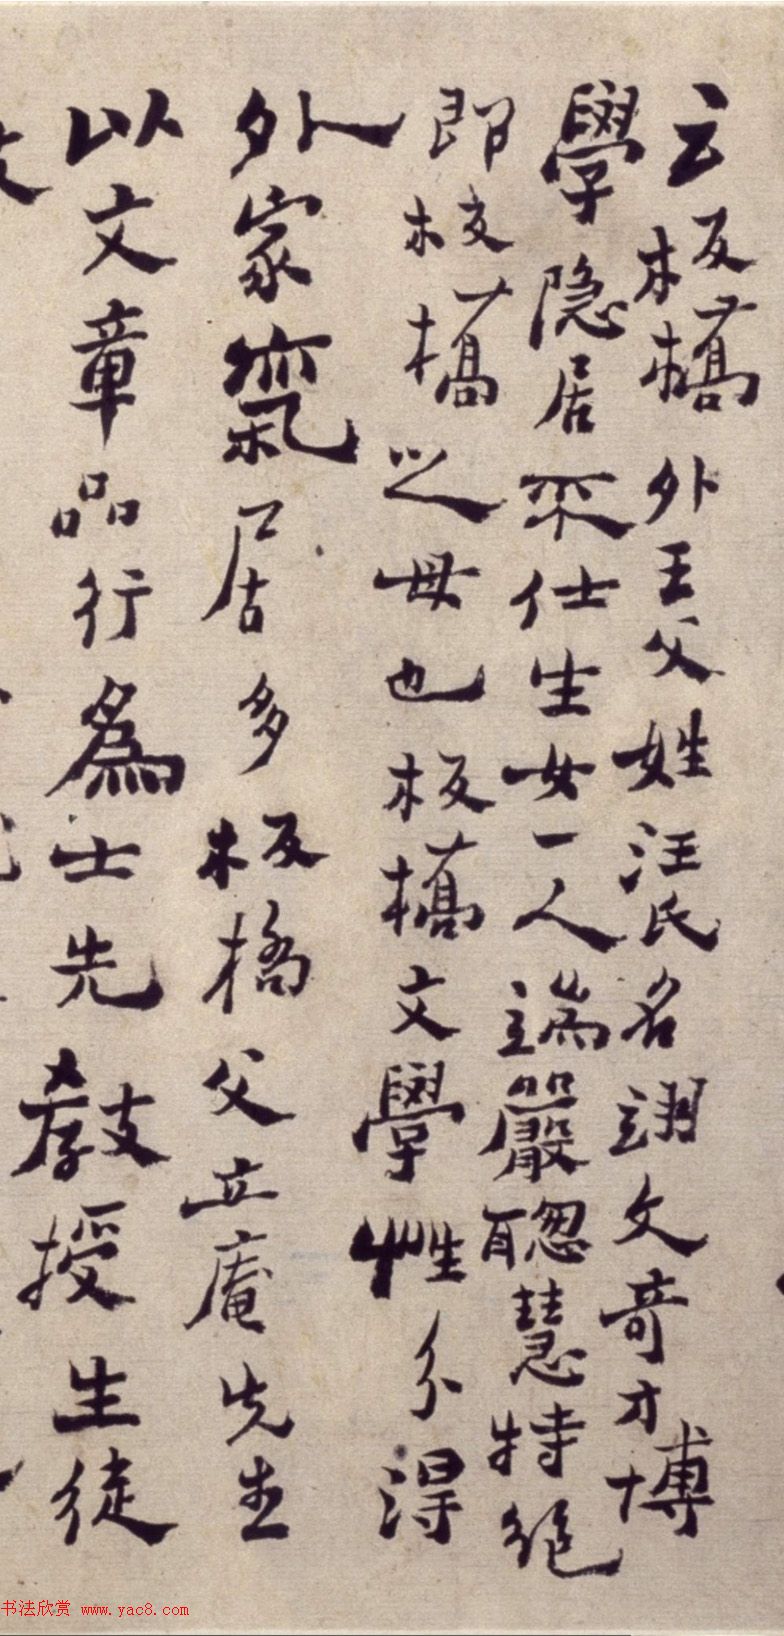 云板橋外王父姓汪氏名翊文奇才博
學隱居不仕生女一人端嚴聰慧特絕
即板橋之母也板橋文學性分得
外家氣居多板橋父立庵先生
以文章品行為士先教授生徒
书法欣赏 www.yac8.com